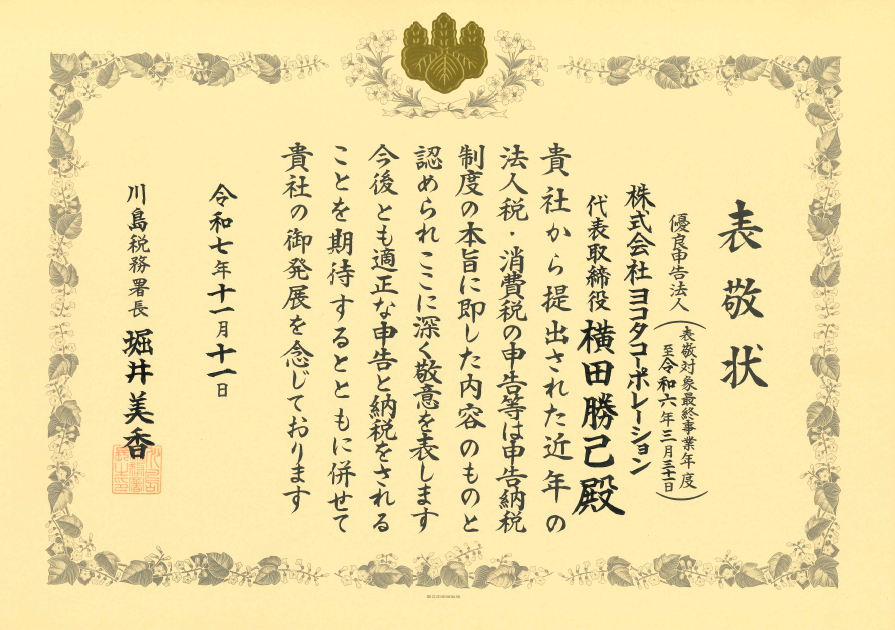 表敬状
優良申告法人
(表敬対象最終事業年度
至令和六年三月三十一日)
株式会社ヨコタコーポレーション
代表取締役 横田勝己殿
貴社から提出された近年の
法人税・消費税の申告等は申告納税
制度の本旨に即した内容のものと
認められここに深く敬意を表します
今後とも適正な申告と納税をされる
ことを期待するとともに併せて
貴社の御発展を念じております
令和七年十一月十一日
川島税務署長 堀井美香